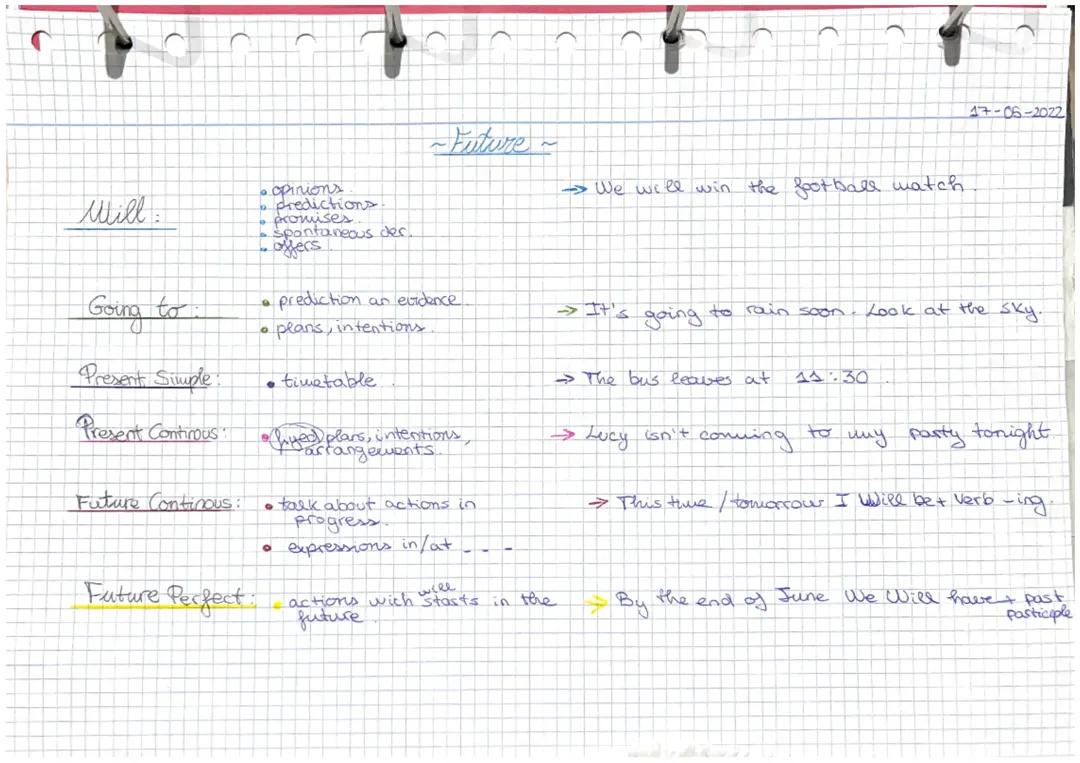 17-06-2022
~ Future ~
Will:
• opinions.
• predictions.
• promises.
• spontaneous dec.
• offers.
→ We will win the football match.
Going to:
• prediction an evidence.
• plans, intentions.
→ It's going to rain soon. Look at the sky.
Present Simple:
• timetable.
→ The bus leaves at 11:30.
Present Continous:
• plans, intentions,
arrangements.
→ Lucy isn't coming to my party tonight.
Future Continous:
• talk about actions in
progress.
• expressions in/at - - -
→ This time / tomorrow I Will be + Verb -ing.
Future Perfect:
will
• actions wich starts in the
future.
→ By the end of June We Will have + past
participle